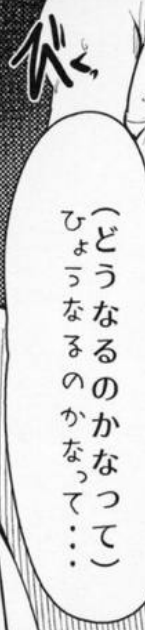 びくっ
(どうなるのかなって)
ひょうなるのかなって・・・